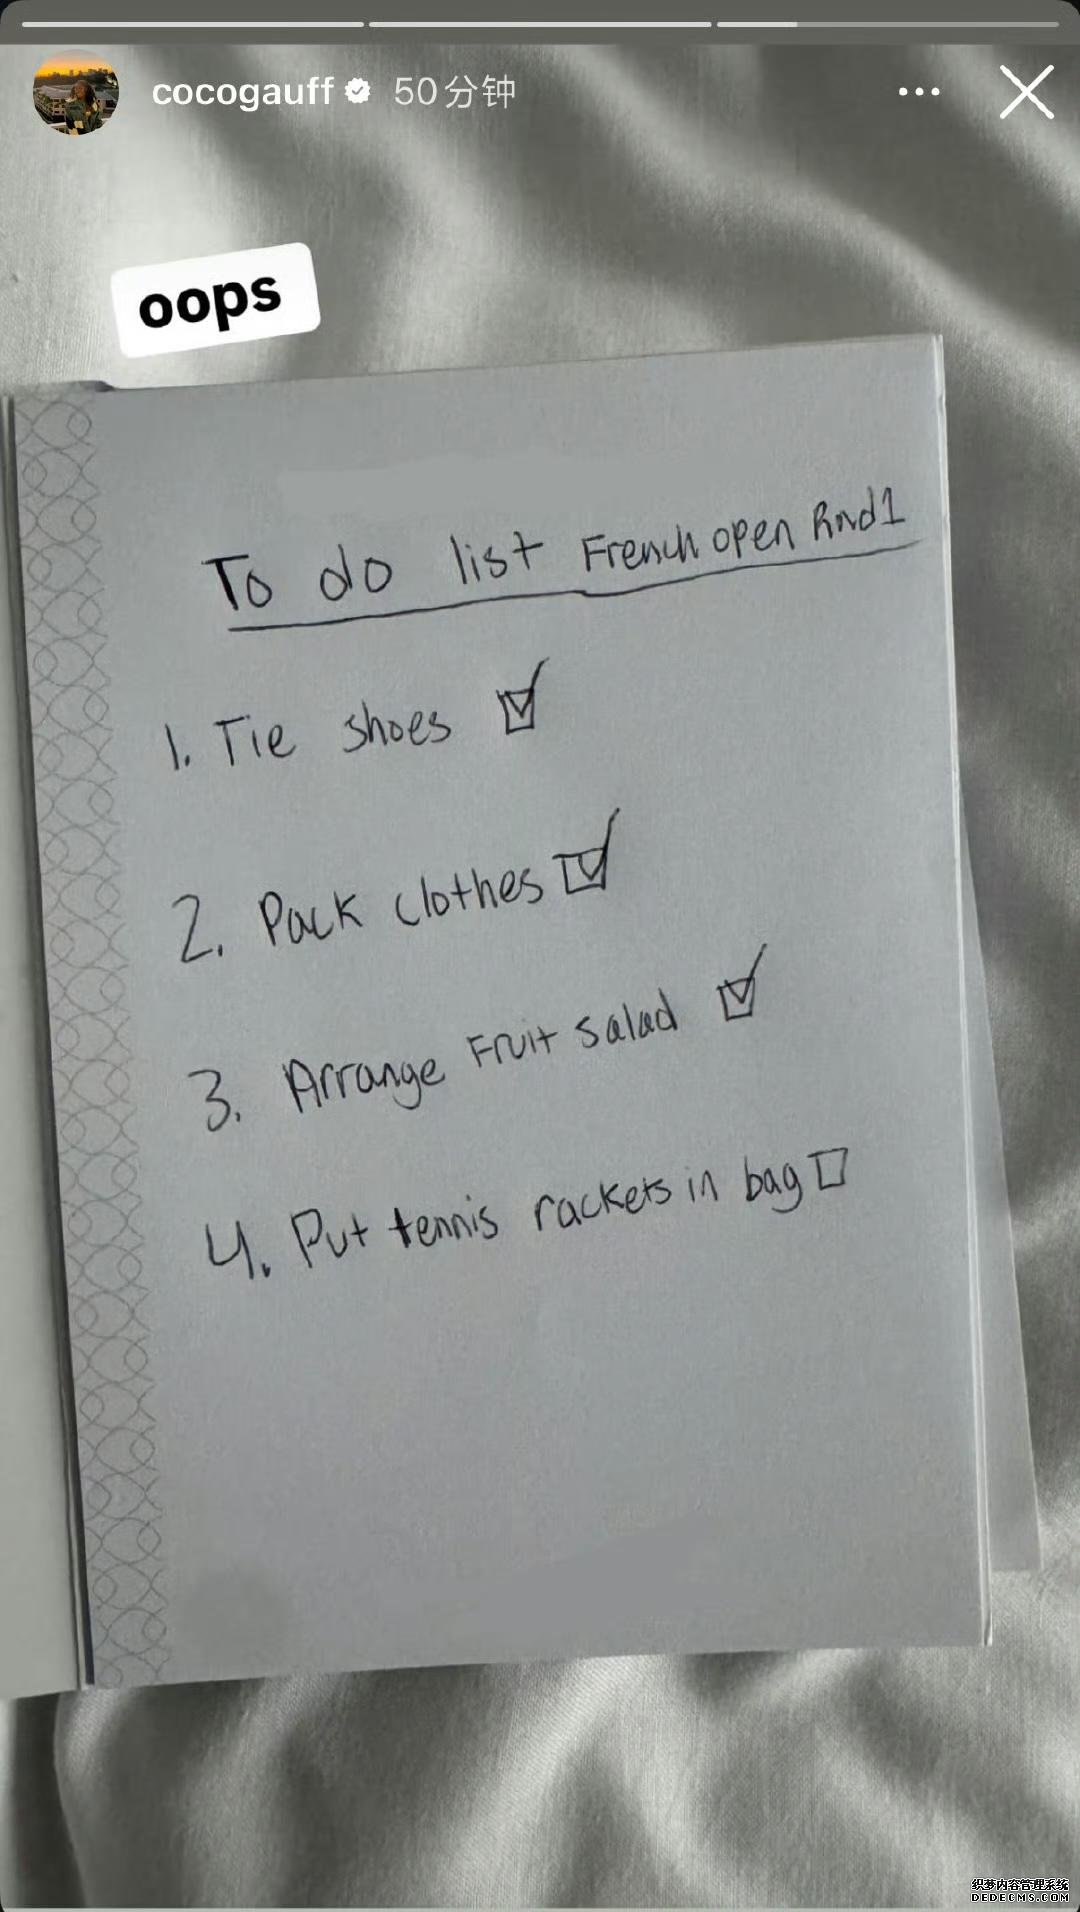 cocogauff 50分钟
oops
To do list French open Rnd1
1. Tie shoes
2. Pack clothes
3. Arrange Fruit salad
4. Put tennis rackets in bag
织梦内容管理系统
DEDECMS.COM